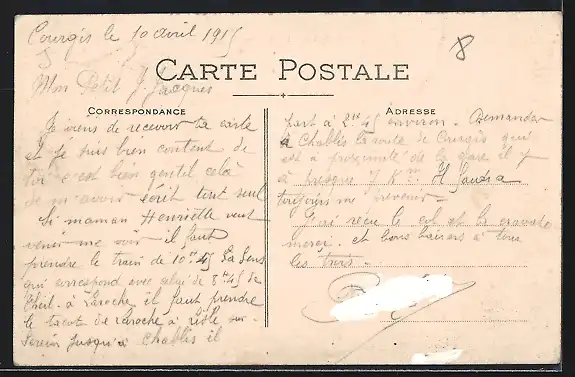 Courgis le 10 avril 1915
8
Mon Petit J Jacques
CARTE POSTALE
CORRESPONDANCE
Je viens de recevoir ta carte
et je suis bien content de
toi c'est bien gentil celà
de m'avoir écrit tout seul
Si maman Henriette veut
venir me voir il faut
prendre le train de 10h45 La Sens
qui correspond avec celui de 8h45 de
à Laroche il faut prendre
le tacote de Laroche à l'Isle sur
Serein jusqu'à Chablis il
ADRESSE
part à 2h45 environ. Demander
à Chablis la route de Courgis qui
est à proximité de la gare il y
a presque 7 Km. Il faudra
toujours me prévenir.
J'ai reçu le col et la cravate
merci. et bons baisers à tous
les trois.